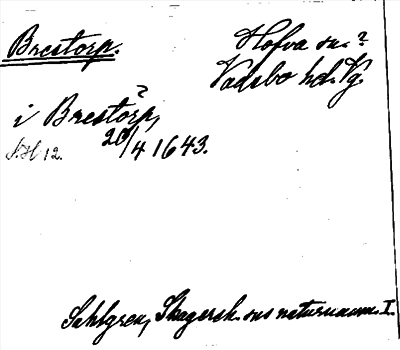 Brestorp.
Hofva sn.?
Vadsbo hd. Vg.
?
i Brestorp,
20/4 1643.
S.H 12.
Sahlgren, Skagersh. sns naturnamn. I.